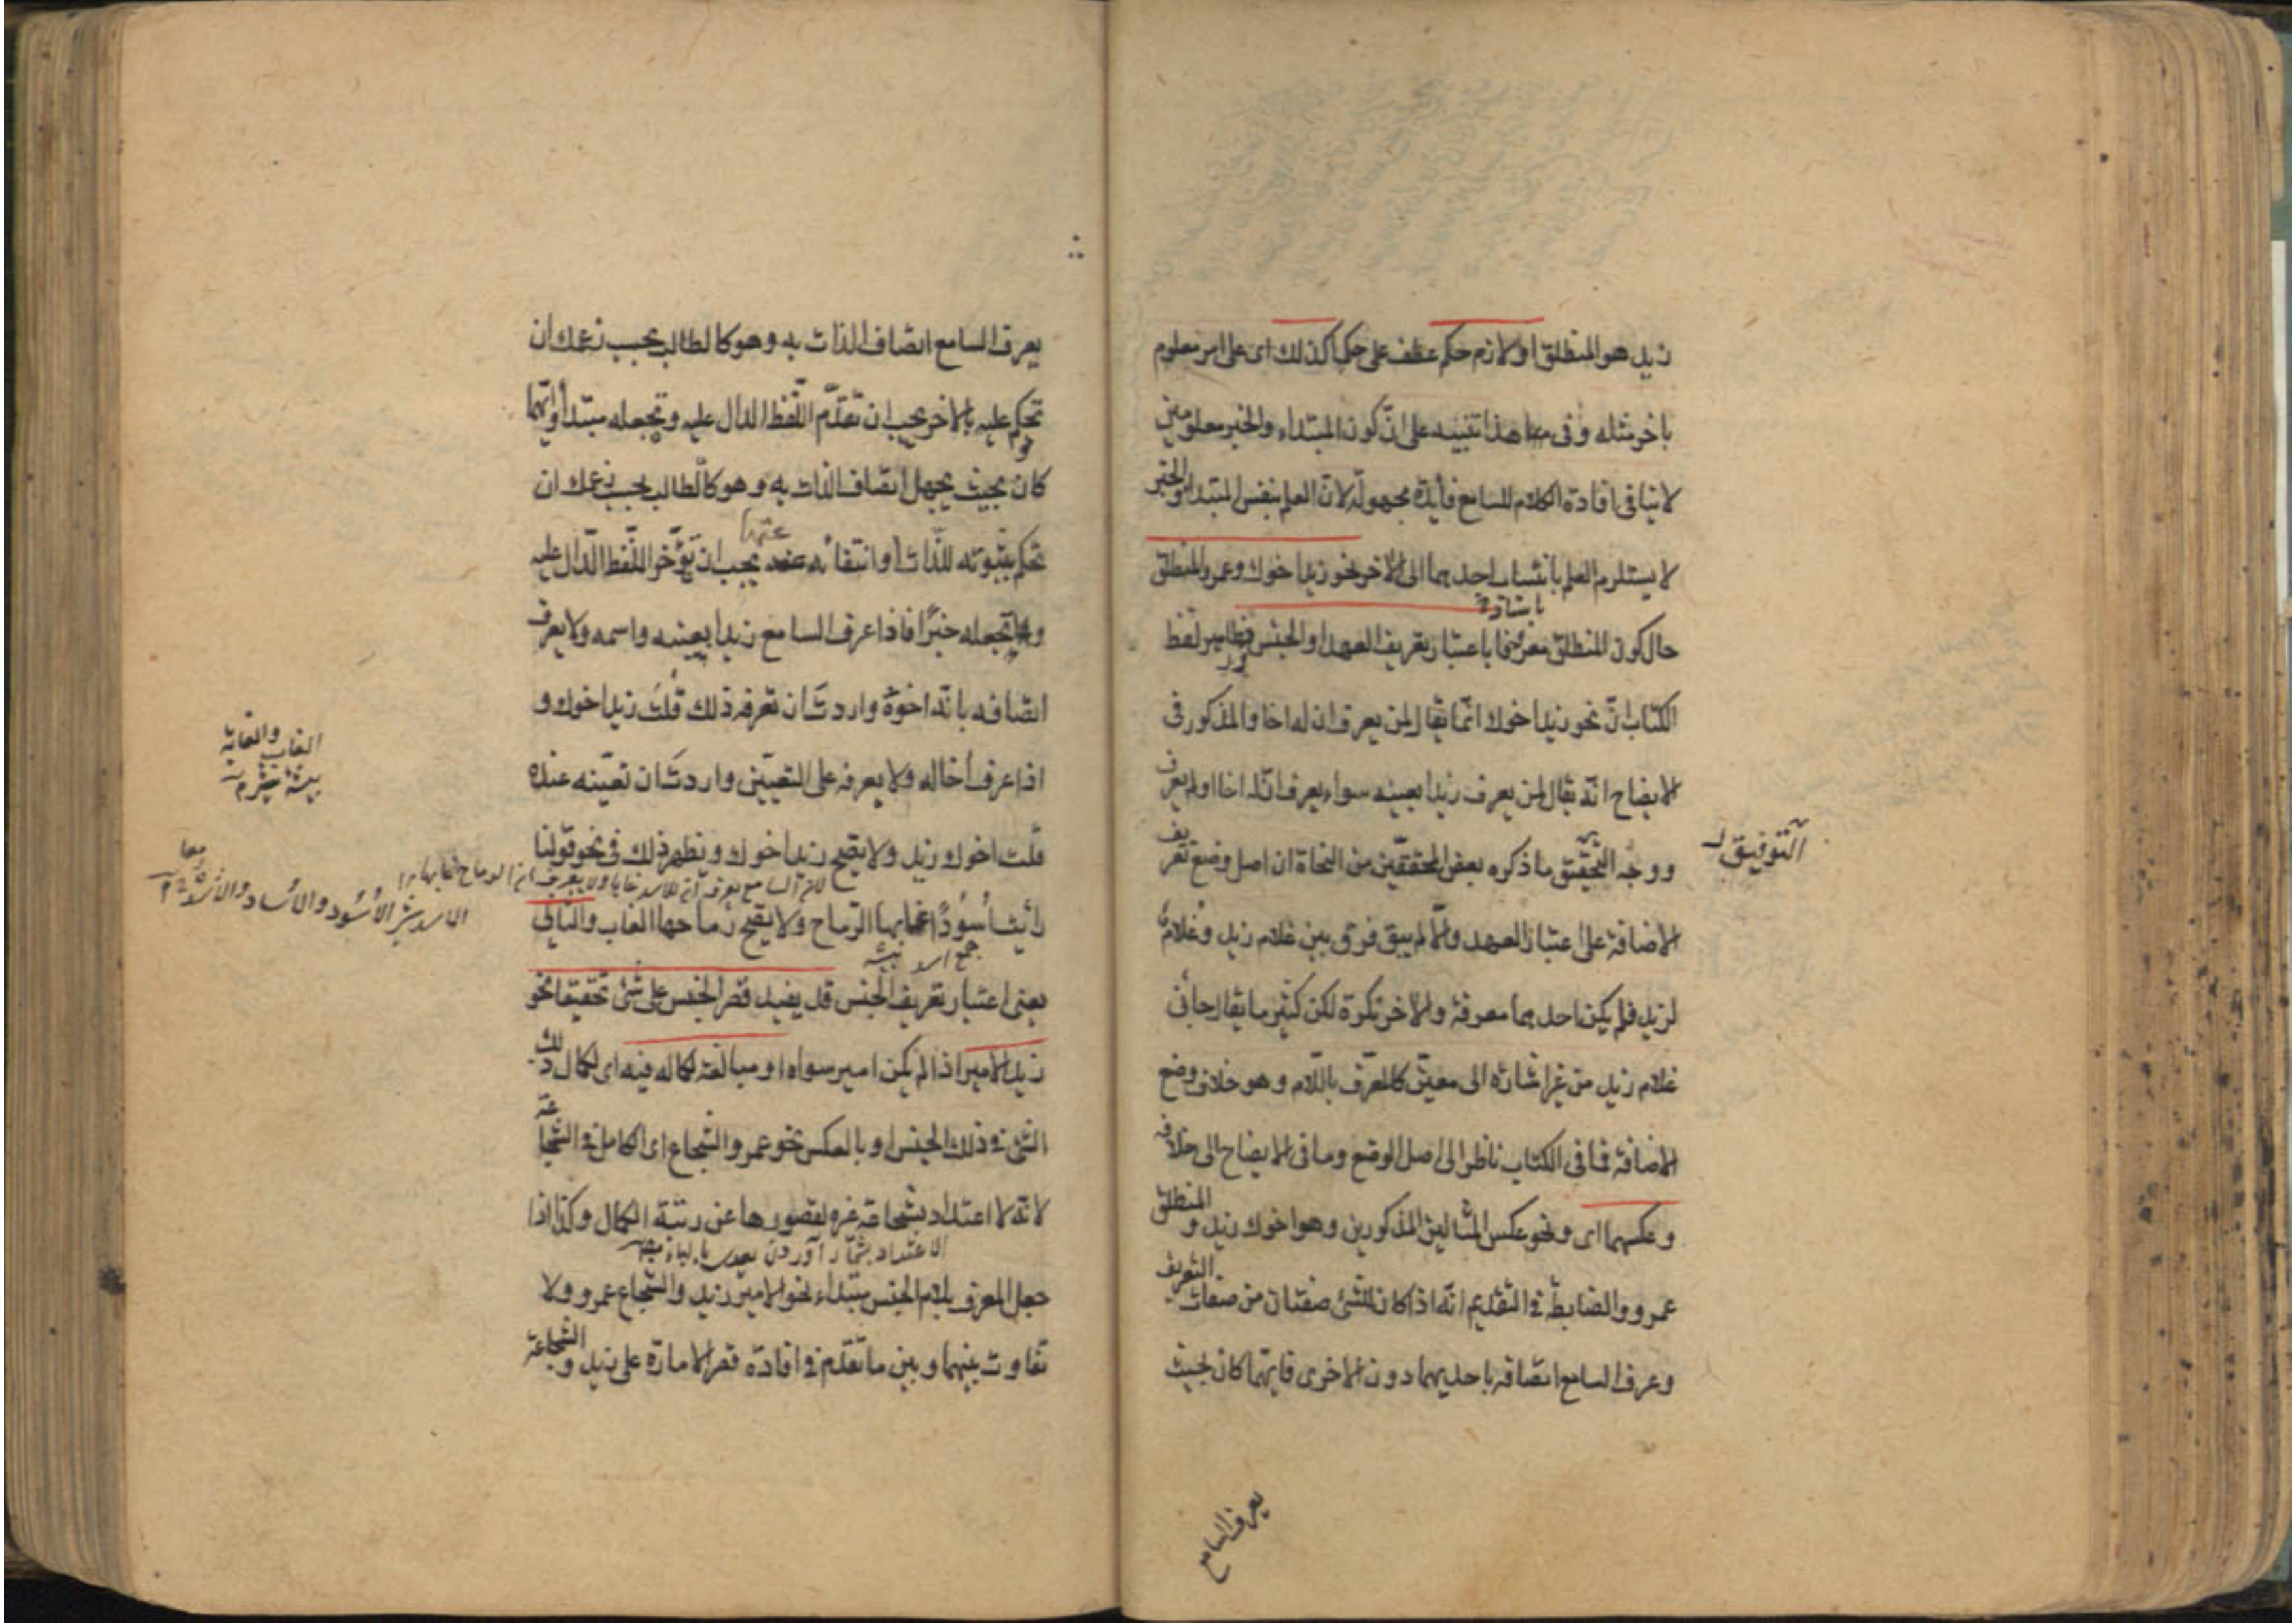 زيد هو المنطلق او لازم حكم عطف على حكما كذلك اى على امر معلوم
باخر مثله وفى هذا تنبيه على ان كون المبتداء والخبر معلومين
لا ينافى افادة الكلام للسامع فايدة مجهولة لان العلم بنفس المبتدا والخبر
لا يستلزم العلم بانتساب احدهما الى الاخر نحو زيد اخوك وعمرو المنطلق
حال كون المنطلق معرفا باعتبار تعريف العهد او الجنس فظاهر لفظ
الكتاب ان نحو زيد اخوك انما يقال لمن يعرف ان له اخا والمذكور فى
الايضاح انه يقال لمن يعرف زيدا بعينه سواء يعرف ان له اخا او لم يعرف
ووجه التحقيق ما ذكره بعض المحققين من النحاة ان اصل وضع تعريف
التوفيق
الاضافة على اعتبار العهد والا لم يبق فرق بين غلام زيد وغلام
لزيد فلم يكن احدهما معرفة والاخر نكرة لكن كثير ما يقال جائنى
غلام زيد من غير اشارة الى معين كالمعرف باللام وهو خلاف وضع
الاضافة فما فى الكتاب ناظر الى اصل الوضع وما فى الايضاح الى خلافه
وعكسهما اى ونحو عكس المثالين المذكورين وهو اخوك زيد والمنطلق
عمرو والضابط فى التقديم انه اذا كان للشئ صفتان من صفات التعريف
وعرف السامع اتصافه باحديهما دون الاخرى فايهما كان بحيث
يعرف السامع
يعرف السامع اتصاف الذات به وهو كالطالب بحسب زعمك ان
تحكم عليه بالاخر يجب ان تقدم اللفظ الدال عليه وتجعله مبتدأ وايهما
كان بحيث يجهل اتصاف الذات به وهو كالطالب بحسب زعمك ان
تحكم بثبوته للذات او انتفائه عنها يجب ان تؤخر اللفظ الدال عليه
وتجعله خبرًا فاذا عرف السامع زيدا بعينه واسمه ولا يعرف
اتصافه بانه اخوه واردت ان تعرفه ذلك قلت زيد اخوك و
اذا عرف اخا له ولا يعرفه على التعيين واردت ان تعينه عنده
الغاب والغابة
بيشهٔ شير م
قلت اخوك زيد ولا يصح زيد اخوك ويظهر ذلك فى نحو قولنا
لان السامع يعرف ان للاسد غابا ولا يعرف ان الرماح غابها
الاسد شير الأسود والأساد والأسد
رأيت أسودًا غابها الرماح ولا يصح رماحها الغاب والثانى
جمع اسد بيشه
يعنى اعتبار تعريف الجنس قد يفيد قصر الجنس على شئ تحقيقا نحو
زيد الامير اذا لم يكن امير سواه او مبالغة لكماله فيه اى لكمال ذلك
الشئ فى ذلك الجنس او بالعكس نحو عمرو الشجاع اى الكامل فى الشجاعة
لانه لا اعتداد بشجاعة غيره لقصورها عن رتبة الكمال وكذا اذا
الاعتداد بشمار آوردن
جعل المعرف بلام الجنس مبتداء نحو الامير زيد والشجاع عمرو ولا
تفاوت بينهما وبين ما تقدم فى افادة قصر الامارة على زيد والشجاعة